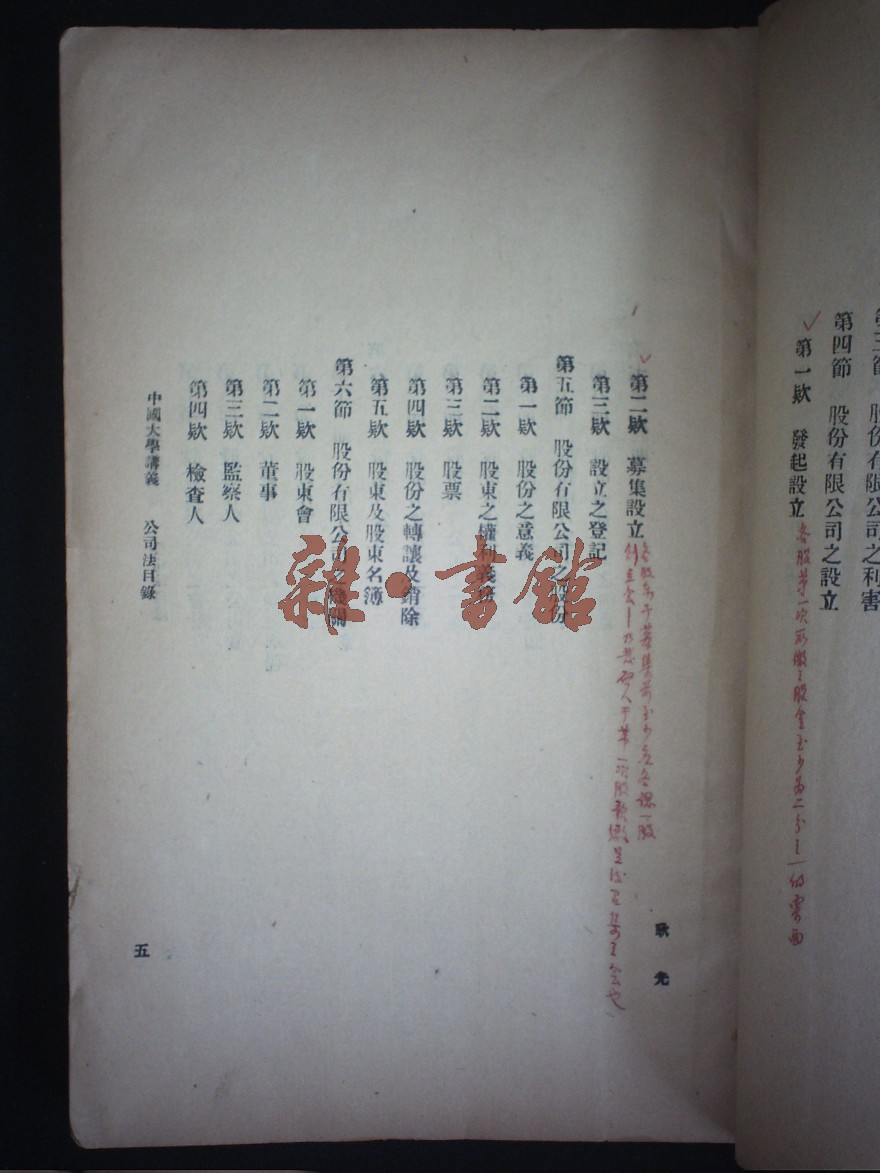 股份有限公司之利害
第四節 股份有限公司之設立
第一欵 發起設立
各股第一次所繳之股金至少為二分之一
第二欵 募集設立
第三欵 設立之登記
第五節 股份有限公司之股份
第一欵 股份之意義
第二欵 股東之權利義務
第三欵 股票
第四欵 股份之轉讓及銷除
第五欵 股東及股東名簿
第六節 股份有限公司之機關
第一欵 股東會
第二欵 董事
第三欵 監察人
第四欵 檢查人
中國大學講義 公司法目錄
五
耿光
雜·書館